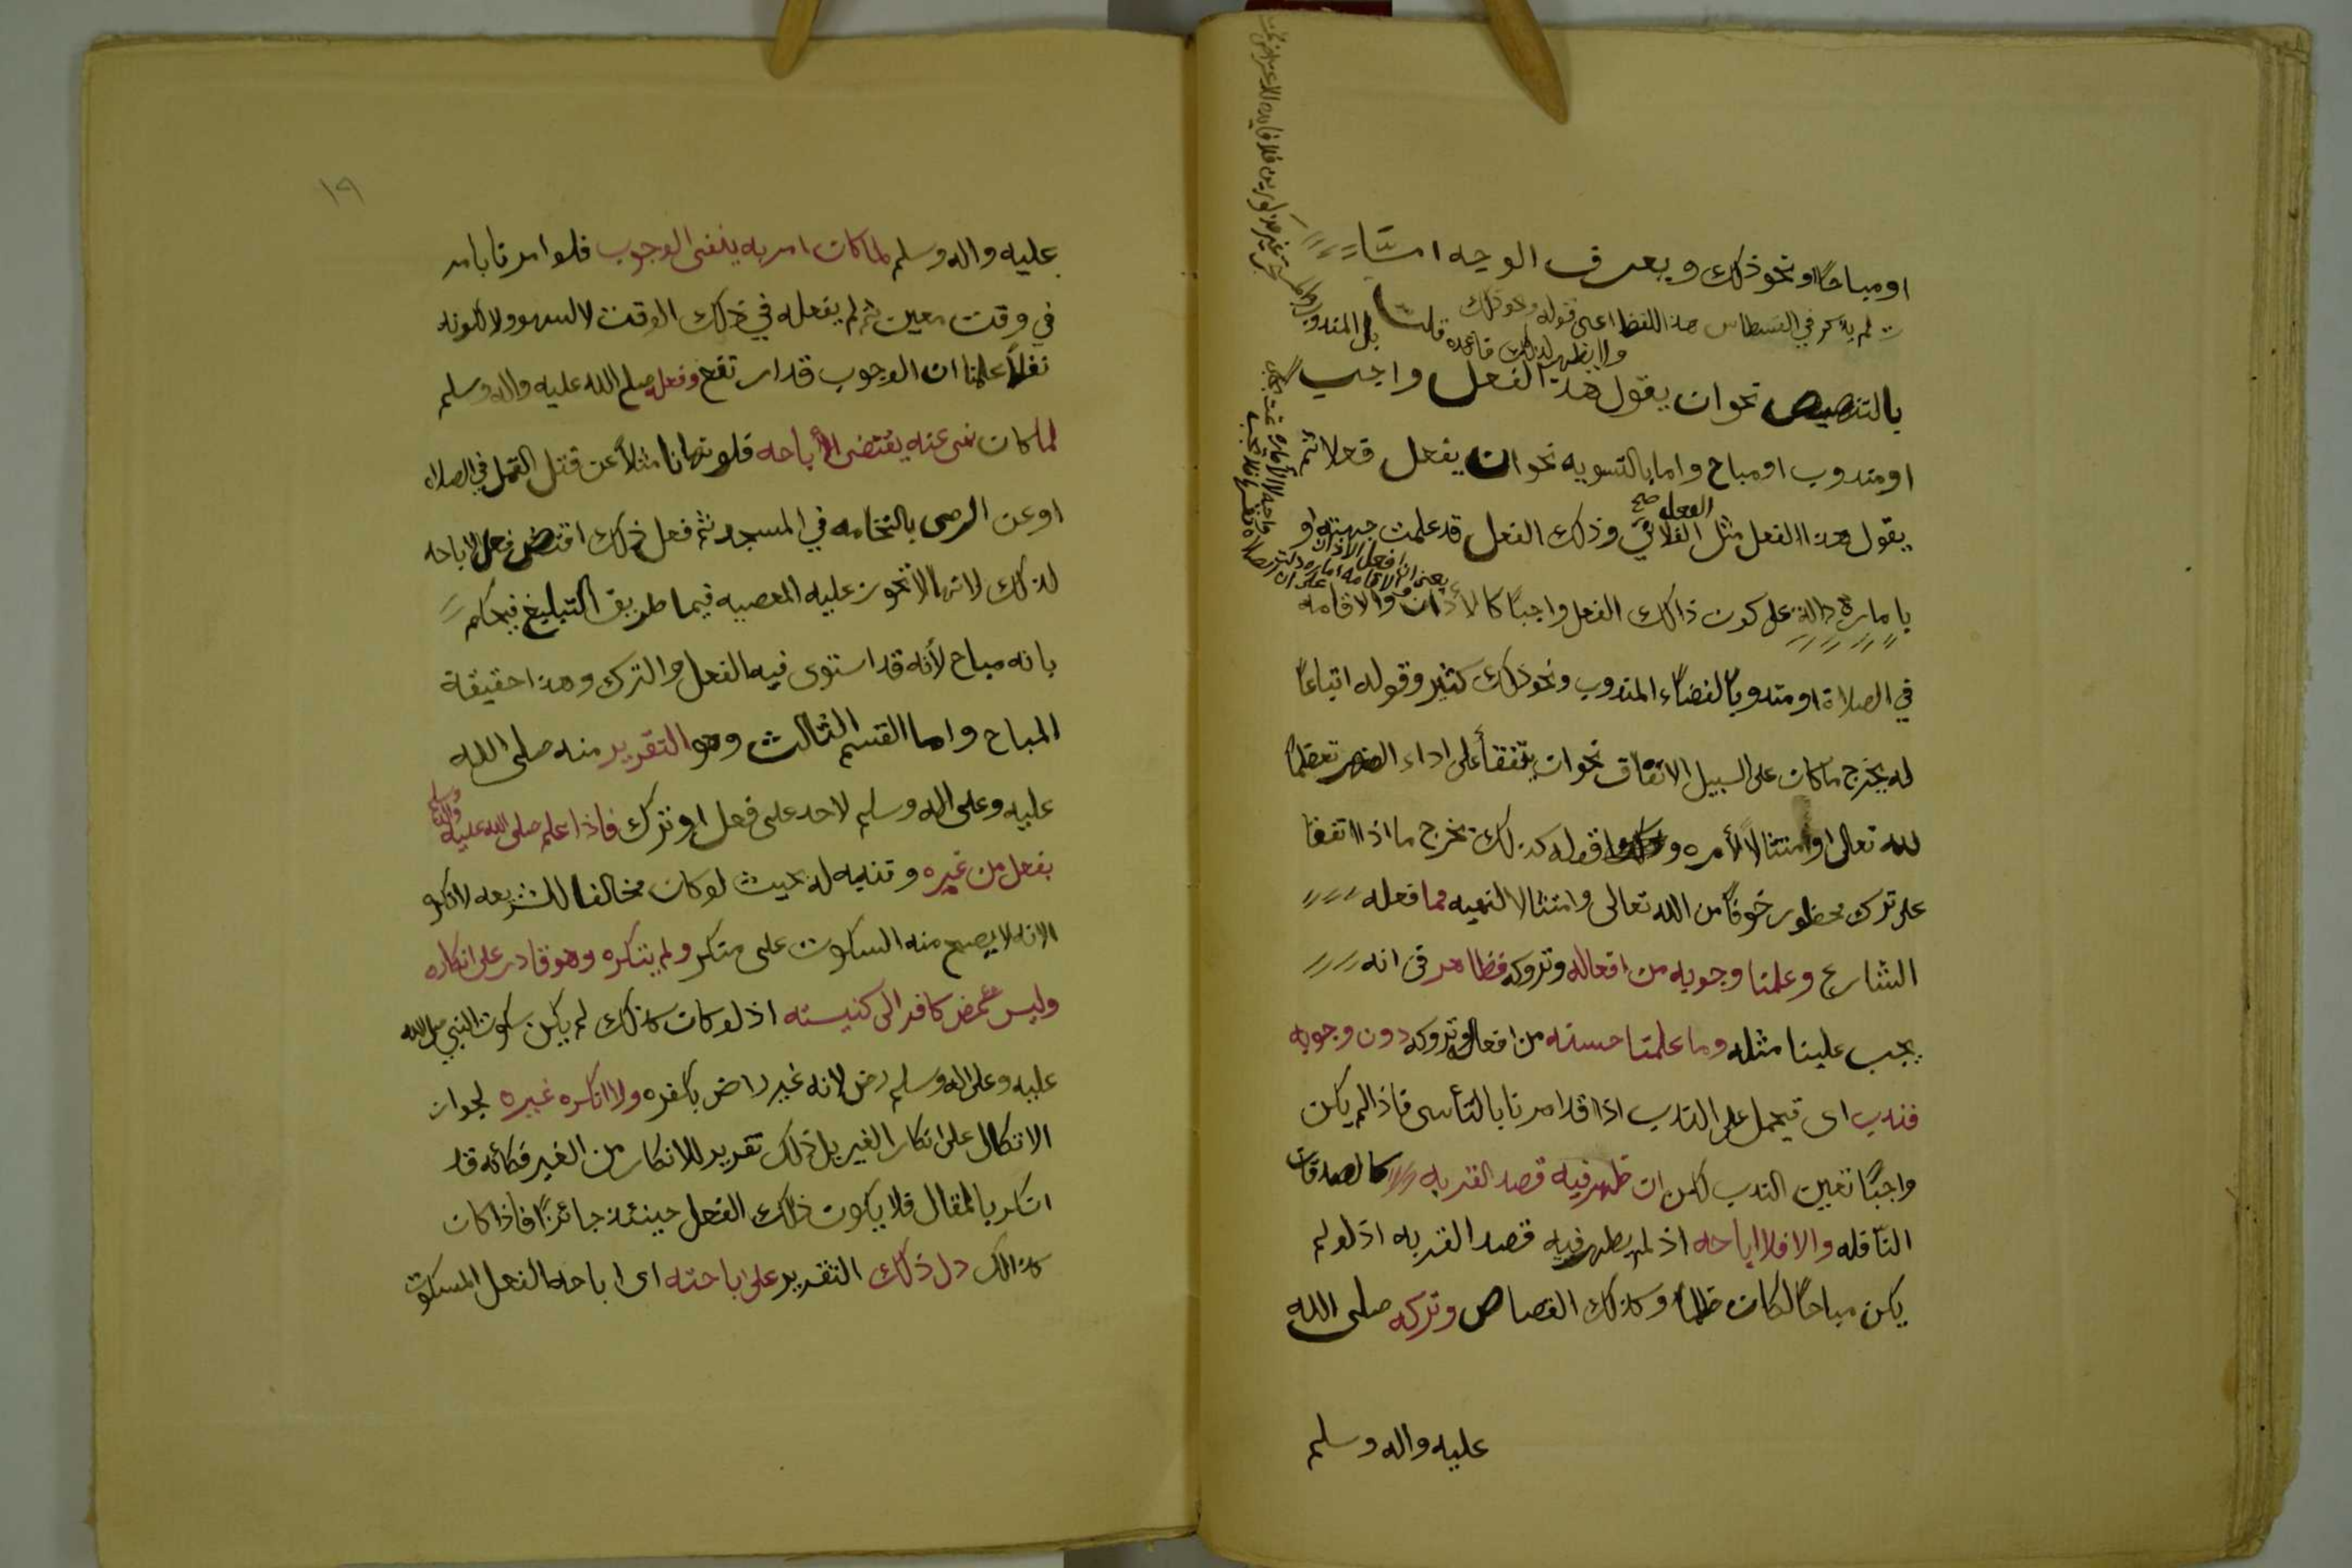 او مباحًا او نحو ذلك ويعرف الوجه امَّا
لم يذكر في القسطاس هذا اللفظ اعنى قوله ونحو ذلك
ولا يظهر لذلك قاعده قلت
بل المندوب
بالتنصيص نحو ان يقول هذا الفعل واجب
او مندوب او مباح واما بالتسويه نحو ان يفعل فعلا ثم
الفعل صح
يقول هذا الفعل مثل الفلاني وذلك الفعل قد علمت جهته او
يعنى ان فعل الاذان
والاقامه اماره دلت
على ان الصلاة
بامارة دالة على كون ذالك الفعل واجبًا كالأذان والاقامه
في الصلاة او مندوبًا كقضاء المندوب ونحو ذلك كثير وقوله اتباعًا
له يخرج ما كان على السبيل الاتفاق نحو ان يتفقا على اداء الظهر تعظيمًا
لله تعالى او امتثالاً لأمره وكذلك قوله كذلك يخرج ما اذا اتفقا
على ترك محظور خوفًا من الله تعالى وامتثالا لنهيه فما فعله
الشارع وعلمنا وجوبه من افعاله وتروكه فظاهر في انه
يجب علينا مثله وما علمنا حسنه من افعاله وتروكه دون وجوبه
فندب اى فيحمل على الندب اذا قد امرنا بالتأسى فاذا لم يكن
واجبًا تعين الندب لكن ان ظهر فيه قصد القربه كالصدقات
النّافله والا فلا اباحه اذ لم يظهر فيه قصد القربه اذ لو لم
يكن مباحًا لكان ظلمًا وكذلك القصاص وتركه صلى الله
عليه واله وسلم
١٩
عليه واله وسلم لما كان امر به ينفى الوجوب فلو امرنا بامر
في وقت معين ثم لم يفعله في ذلك الوقت لا لسهو ولا لكونه
نفلاً علمنا ان الوجوب قد ارتفع وفعله صلى الله عليه واله وسلم
لما كان نهى عنه يقتضى الأباحه فلو نهانا مثلاً عن قتل القمل في الصلاه
او عن الرمى بالنخامه في المسجد ثم فعل ذلك اقتضى فعل الاباحه
لذلك لانها لا تجوز عليه المعصيه فيما طريق التبليغ فيحكم
بانه مباح لأنه قد استوى فيه الفعل والترك وهذا حقيقة
المباح واما القسم الثالث وهو التقرير منه صلى الله
عليه وعلى اله وسلم لاحد على فعل او ترك فاذا علم صلى الله عليه
واله وسلم
بفعل من غيره وتنبه له بحيث لو كان مخالفا للشريعه لانكره
لانه لا يصح منه السكوت على منكر ولم ينكره وهو قادر على انكاره
وليس كمضى كافر الى كنيسته اذ لو كان كذلك لم يكن سكوت النبي صلى الله
عليه وعلى اله وسلم رضى لانه غير راض بكفره ولا انكره غيره لجواز
الاتكال على انكار الغير بل ذلك تقرير للانكار من الغير فكأنه قد
انكر بالمقال فلا يكون ذلك الفعل حينئذ جائزًا فاذا كان
كذالك دل ذلك التقرير على اباحته اى اباحة الفعل المسكوت